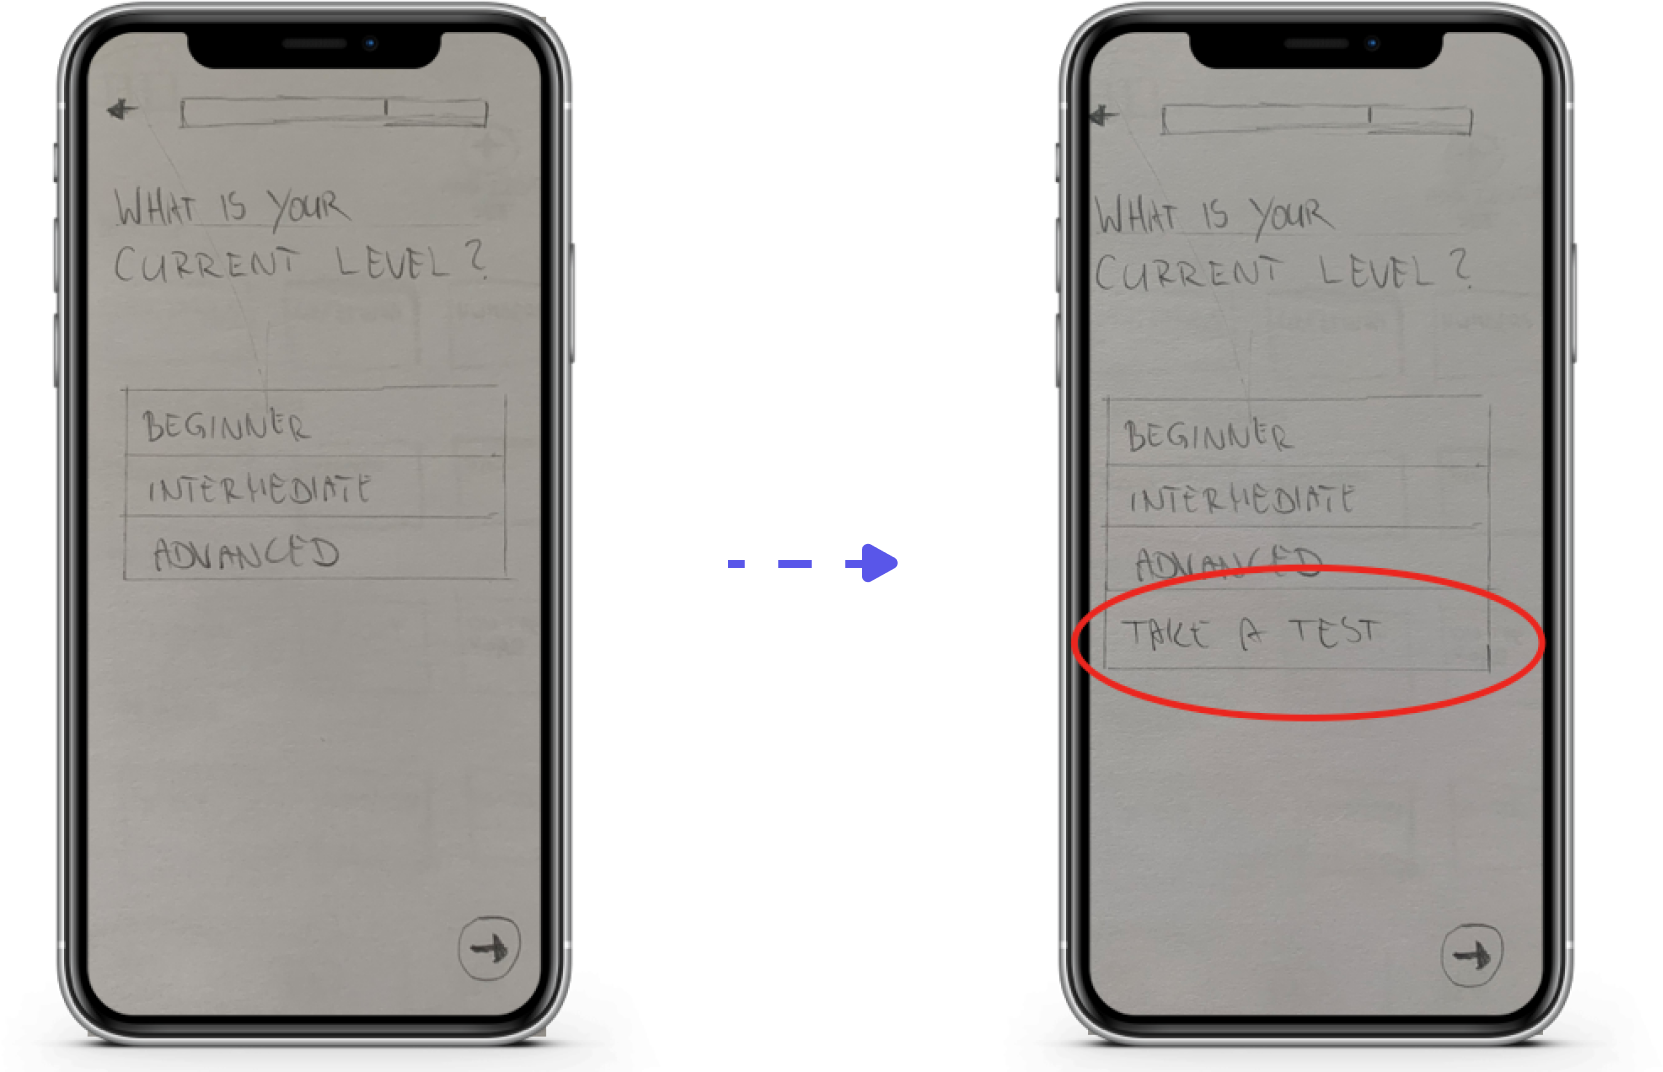 WHAT IS YOUR
CURRENT LEVEL?
BEGINNER
INTERMEDIATE
ADVANCED
WHAT IS YOUR
CURRENT LEVEL?
BEGINNER
INTERMEDIATE
ADVANCED
TAKE A TEST